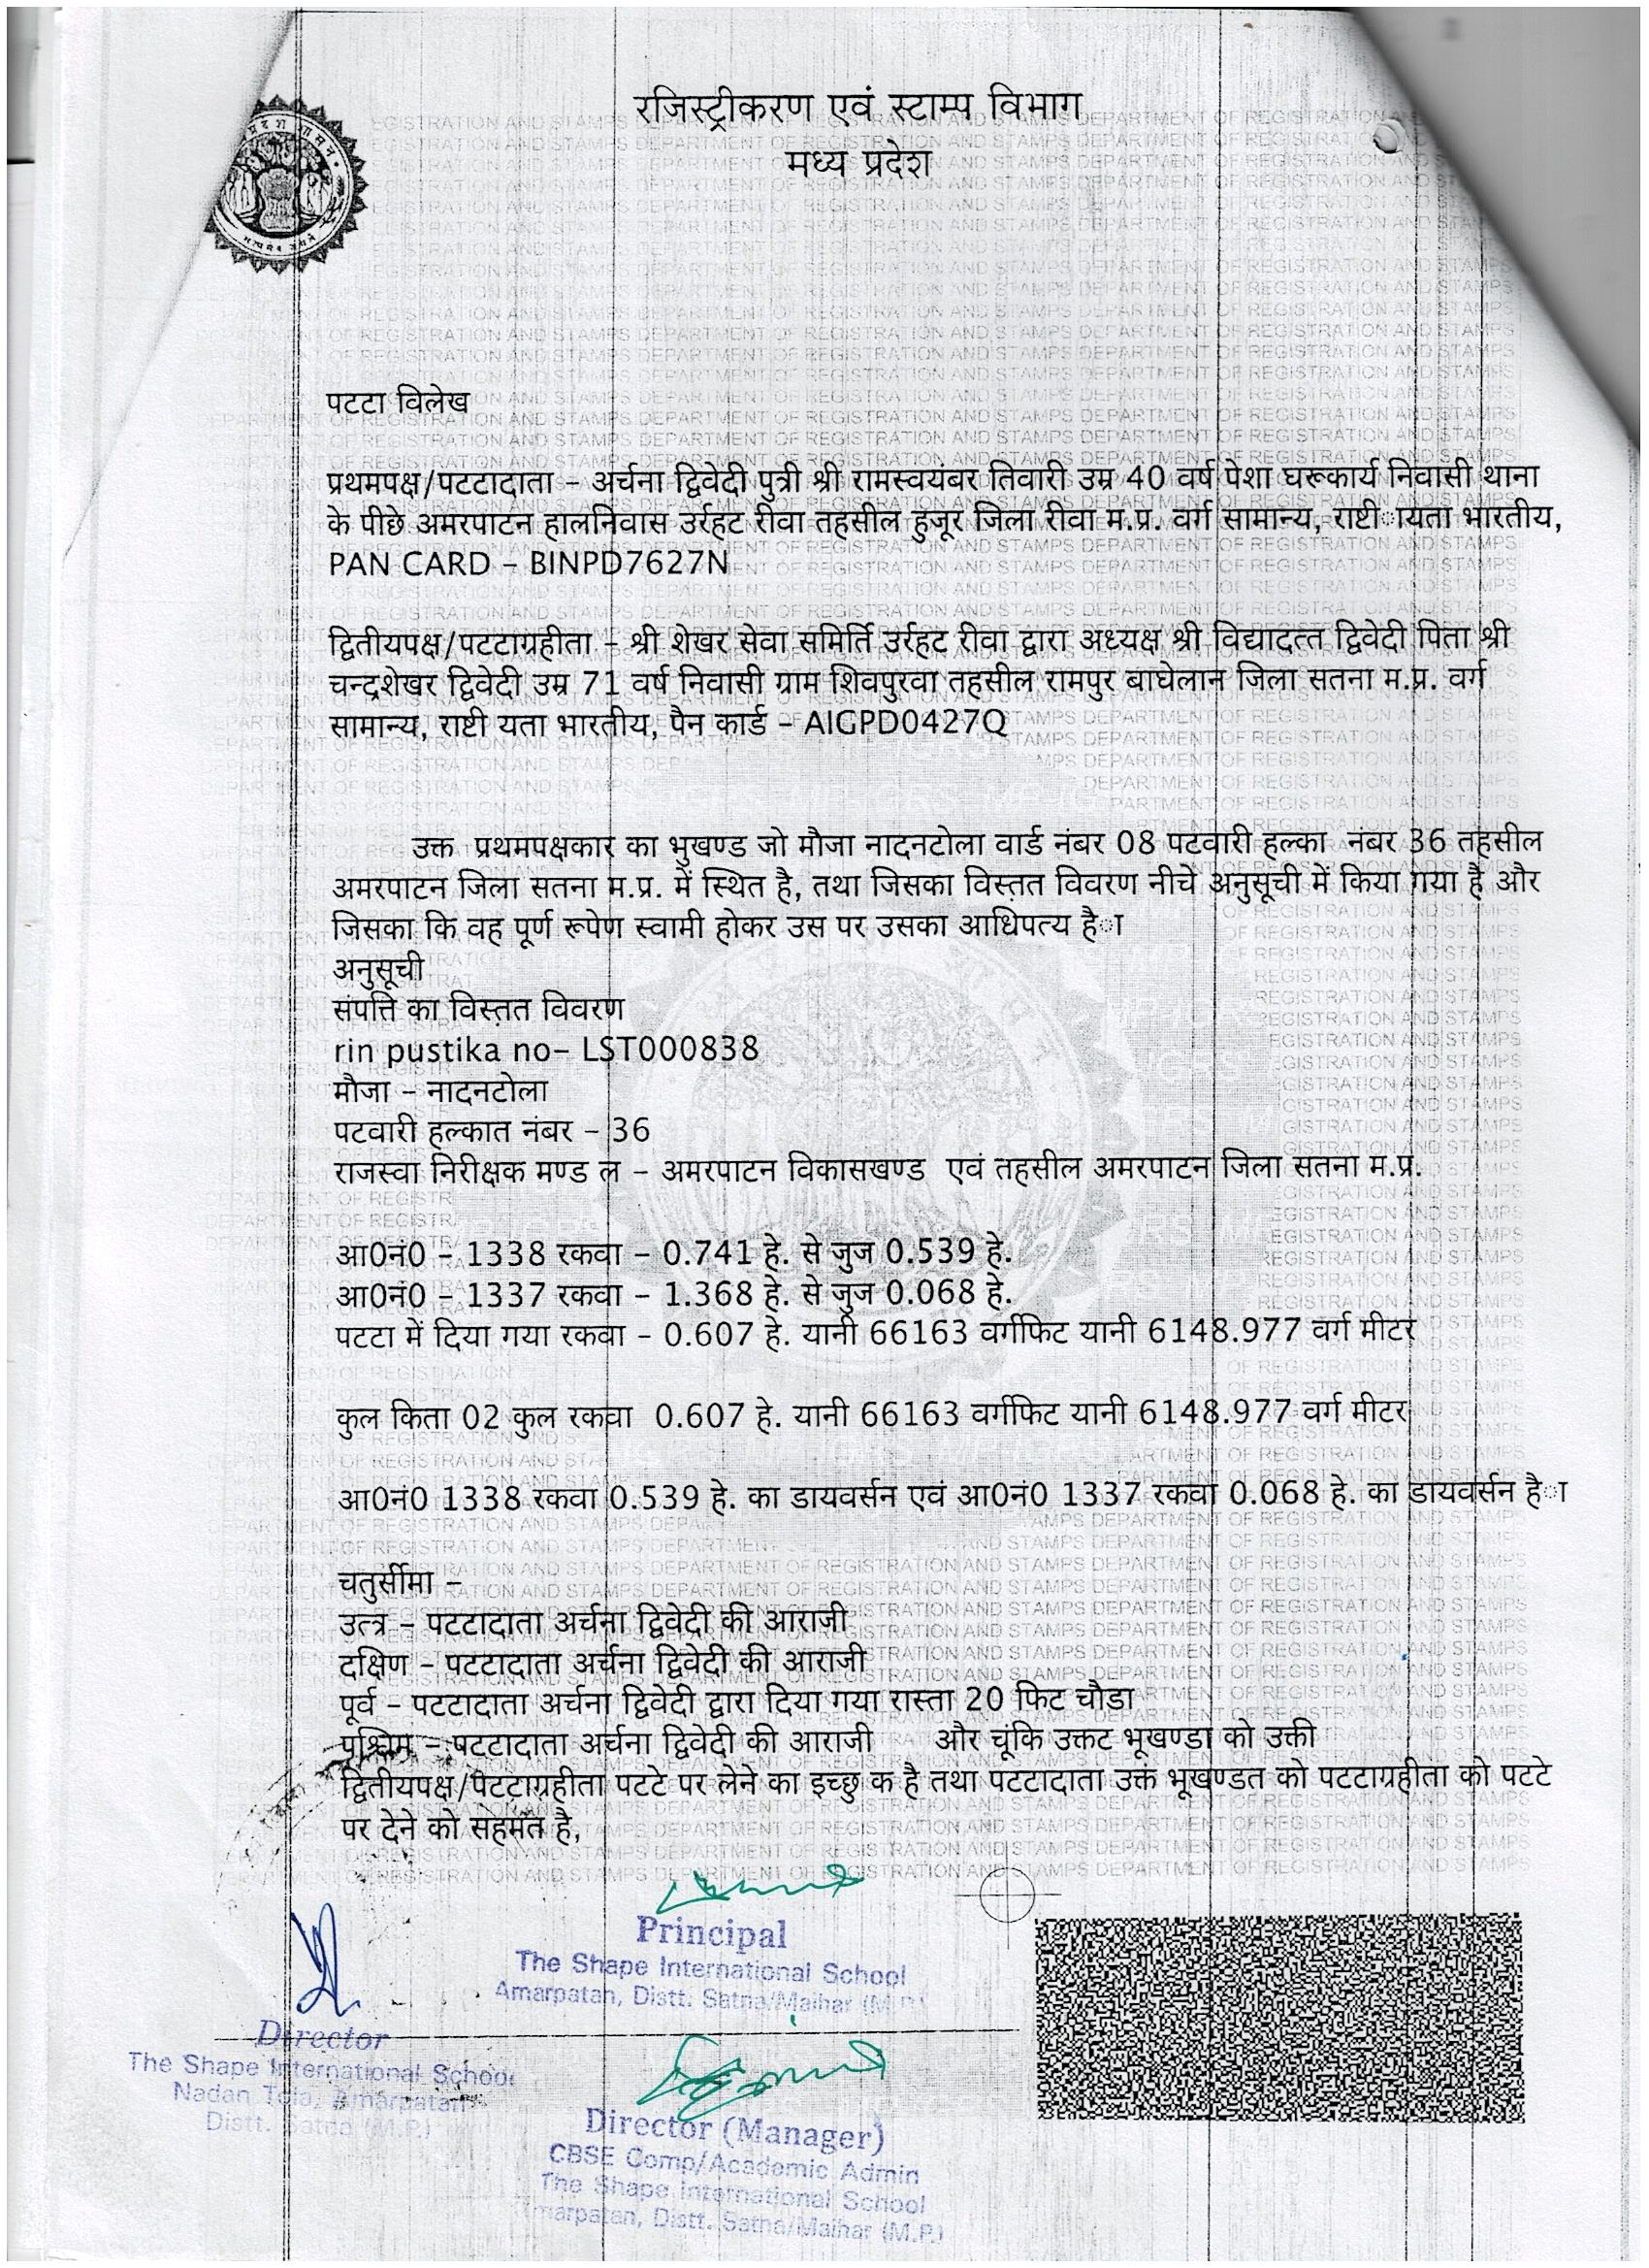 रजिस्ट्रीकरण एवं स्टाम्प विभाग
मध्य प्रदेश
पटटा विलेख
प्रथमपक्ष/पटटादाता – अर्चना द्विवेदी पुत्री श्री रामस्वयंबर तिवारी उम्र 40 वर्ष पेशा घरूकार्य निवासी थाना
के पीछे अमरपाटन हालनिवास उर्रहट रीवा तहसील हुजूर जिला रीवा म.प्र. वर्ग सामान्य, राष्टी ायता भारतीय,
PAN CARD – BINPD7627N
द्वितीयपक्ष/पटटाग्रहीता – श्री शेखर सेवा समिर्ति उर्रहट रीवा द्वारा अध्यक्ष श्री विद्यादत्त द्विवेदी पिता श्री
चन्द्रशेखर द्विवेदी उम्र 71 वर्ष निवासी ग्राम शिवपुरवा तहसील रामपुर बाघेलान जिला सतना म.प्र. वर्ग
सामान्य, राष्टी यता भारतीय, पैन कार्ड – AIGPD0427Q
उक्त प्रथमपक्षकार का भुखण्ड जो मौजा नादनटोला वार्ड नंबर 08 पटवारी हल्का नंबर 36 तहसील
अमरपाटन जिला सतना म.प्र. में स्थित है, तथा जिसका विस्तृत विवरण नीचें अनुसूची में किया गया है और
जिसका कि वह पूर्ण रूपेण स्वामी होकर उस पर उसका आधिपत्य है ा
अनुसूची
संपत्ति का विस्तृत विवरण
rin pustika no– LST000838
मौजा – नादनटोला
पटवारी हल्कात नंबर – 36
राजस्वा निरीक्षक मण्ड ल – अमरपाटन विकासखण्ड एवं तहसील अमरपाटन जिला सतना म.प्र.
आ0नं0 – 1338 रकवा – 0.741 हे. से जुज 0.539 हे.
आ0नं0 – 1337 रकवा – 1.368 हे. से जुज 0.068 हे.
पटटा में दिया गया रकवा – 0.607 हे. यानी 66163 वर्गफिट यानी 6148.977 वर्ग मीटर
कुल किता 02 कुल रकवा 0.607 हे. यानी 66163 वर्गफिट यानी 6148.977 वर्ग मीटर
आ0नं0 1338 रकवा 0.539 हे. का डायवर्सन एवं आ0नं0 1337 रकवा 0.068 हे. का डायवर्सन है ा
चतुर्सीमा –
उत्त्र – पटटादाता अर्चना द्विवेदी की आराजी
दक्षिण – पटटादाता अर्चना द्विवेदी की आराजी
पूर्व – पटटादाता अर्चना द्विवेदी द्वारा दिया गया रास्ता 20 फिट चौडा
पश्चिम – पटटादाता अर्चना द्विवेदी की आराजी और चूंकि उक्तट भूखण्डा को उक्ती
द्वितीयपक्ष/पटटाग्रहीता पटटे पर लेने का इच्छु क है तथा पटटादाता उक्त भूखण्डत को पटटाग्रहीता को पटटे
पर देने को सहमत है,
Principal
The Shape International School
Amarpatan, Distt. Satna/Maihar (M.P.)
Director
The Shape International School
Nadan Tola, Amarpatan
Distt. Satna (M.P.)
Director (Manager)
CBSE Comp/Academic Admin
The Shape international School
Amarpatan, Distt. Satna/Maihar (M.P.)